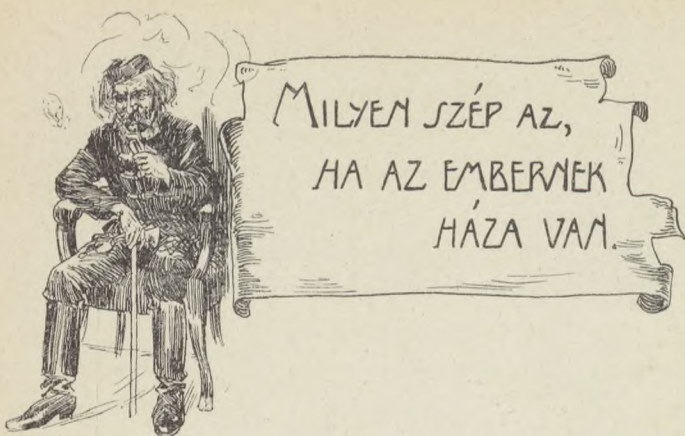 MILYEN SZÉP AZ,
HA AZ EMBERNEK
HÁZA VAN.